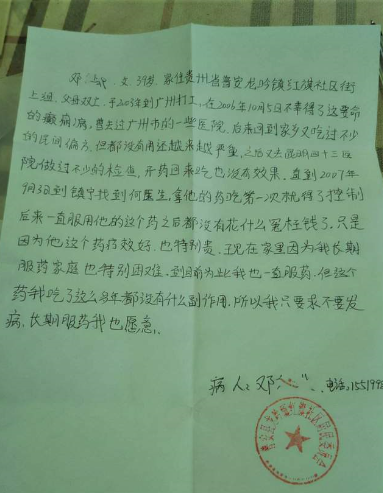 邓 女，39岁，家住贵州省普安龙吟镇红旗社区街
上组，父母双亡，于2003年到广州打工，在2006年10月5日不幸得了这要命
的癫痫病，曾去过广州市的一些医院，后来回到家乡又吃过不少
的民间偏方，但都没有用还越来越严重，之后又去昆明四十三医
院做过不少的检查，开药回来吃也没有效果，直到2007年
何回到镇宁找到何医生，拿他的药吃第一次就得了控制
后来一直服用他的这个药之后都没有花什么冤枉钱了，只是
因为他这个药疗效好，也特别贵，现在家里因为我长期
服药家庭也特别困难，到目前为止我也一直服药，但这个
药我吃了这么多年都没有什么副作用，所以我只要求不要发
病，长期服药我也愿意，
病人：邓 电话，155199